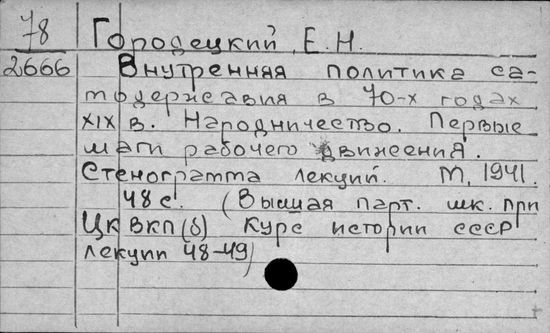 78 Городецкий, Е.Н.
2666 Внутренняя политика са-
модержавия в 70-х годах
XIX в. Народничество. Первые
шаги рабочего движения.
Стенограмма лекций. М, 1941.
48 с. (Высшая парт. шк. при
ЦК ВКП(б) Курс истории СССР
Лекции 48-49)